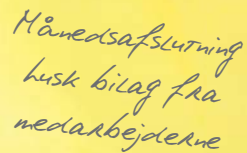 Månedsafslutning
husk bilag fra
medarbejderne